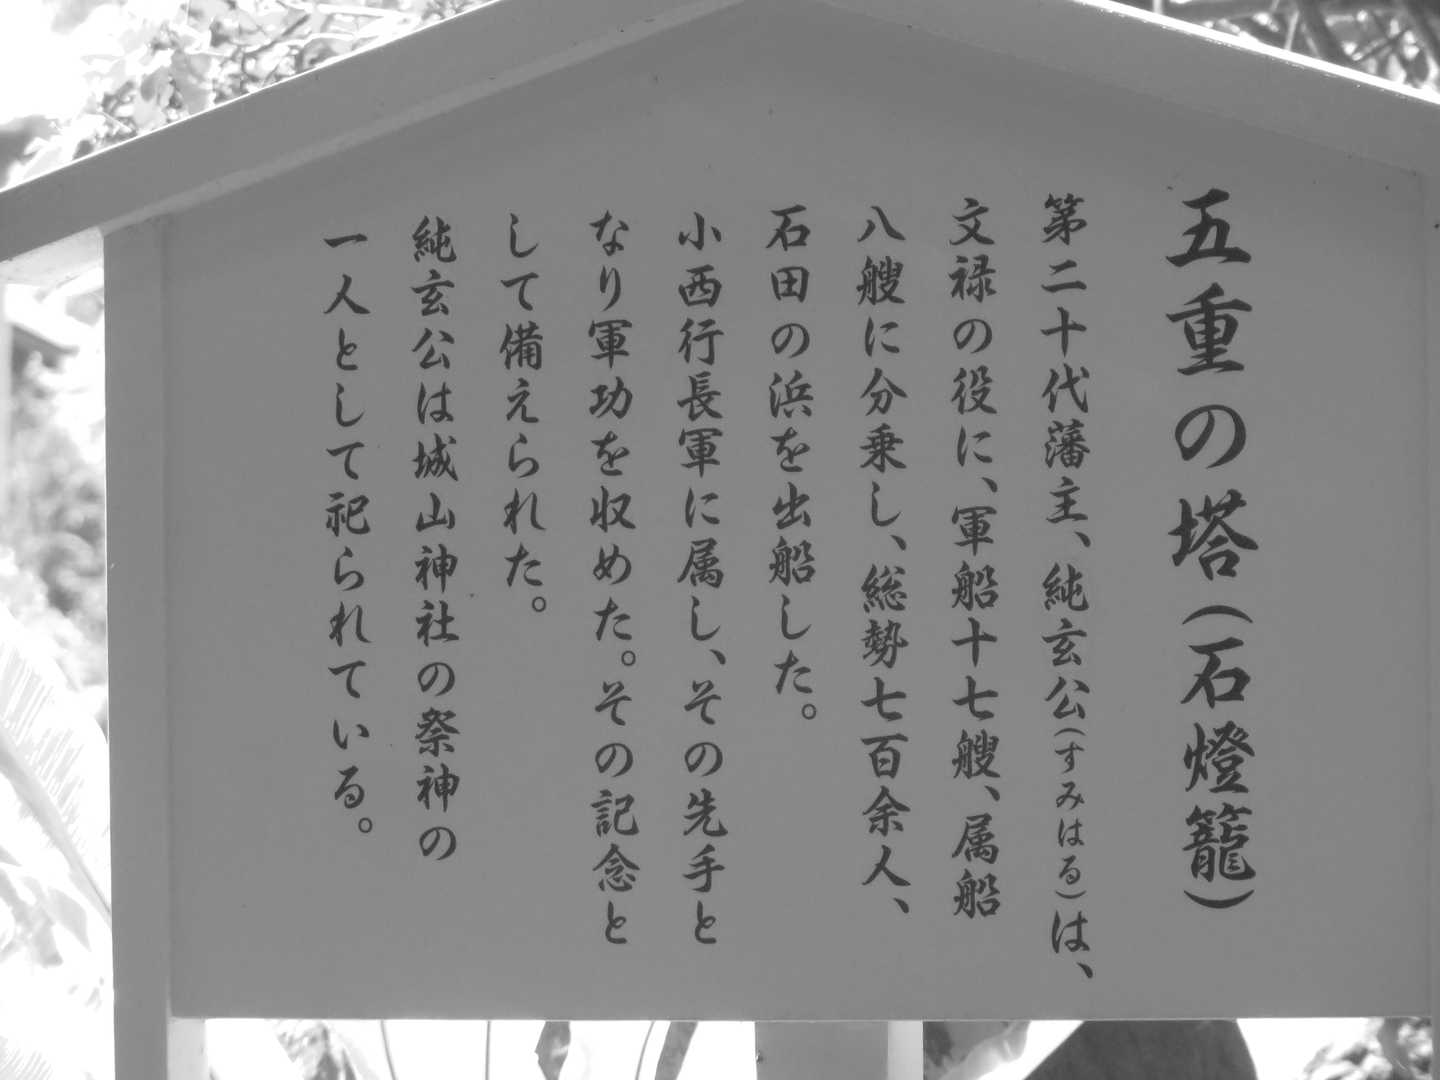 五重の塔(石燈籠)
第二十代藩主、純玄公(すみはる)は、
文禄の役に、軍船十七艘、属船
八艘に分乗し、総勢七百余人、
石田の浜を出船した。
小西行長軍に属し、その先手と
なり軍功を収めた。その記念と
して備えられた。
純玄公は城山神社の祭神の
一人として祀られている。